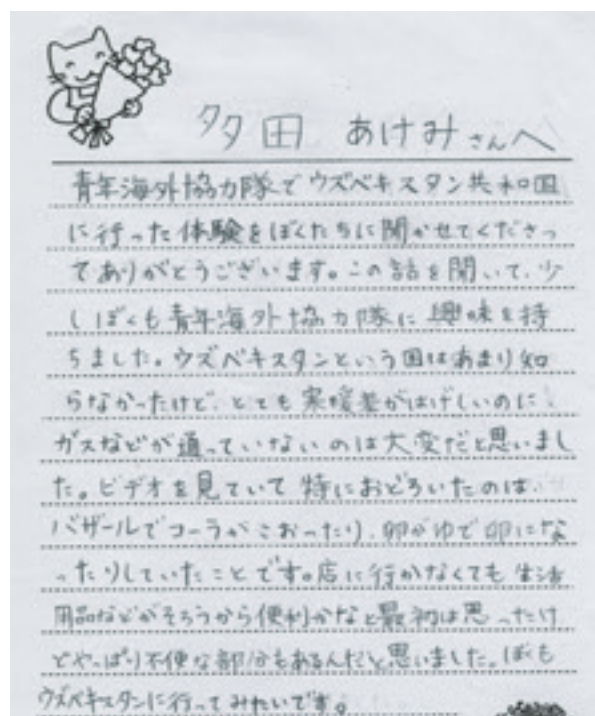 多田 あけみさんへ
青年海外協力隊でウズベキスタン共和国
に行った体験をぼくたちに聞かせてくださっ
てありがとうございます。この話を聞いて、少
しぼくも青年海外協力隊に興味を持
ちました。ウズベキスタンという国はあまり知
らなかったけど、とても寒暖差がはげしいのに
ガスなどが通っていないのは大変だと思いまし
た。ビデオを見ていて特におどろいたのは
バザールでコーラがこおったり、卵がゆで卵にな
ったりしていたことです。店に行かなくても生活
用品などがそろうから便利かなと最初は思ったけ
どやっぱり不便な部分もあるんだと思いました。ぼくも
ウズベキスタンに行ってみたいです。